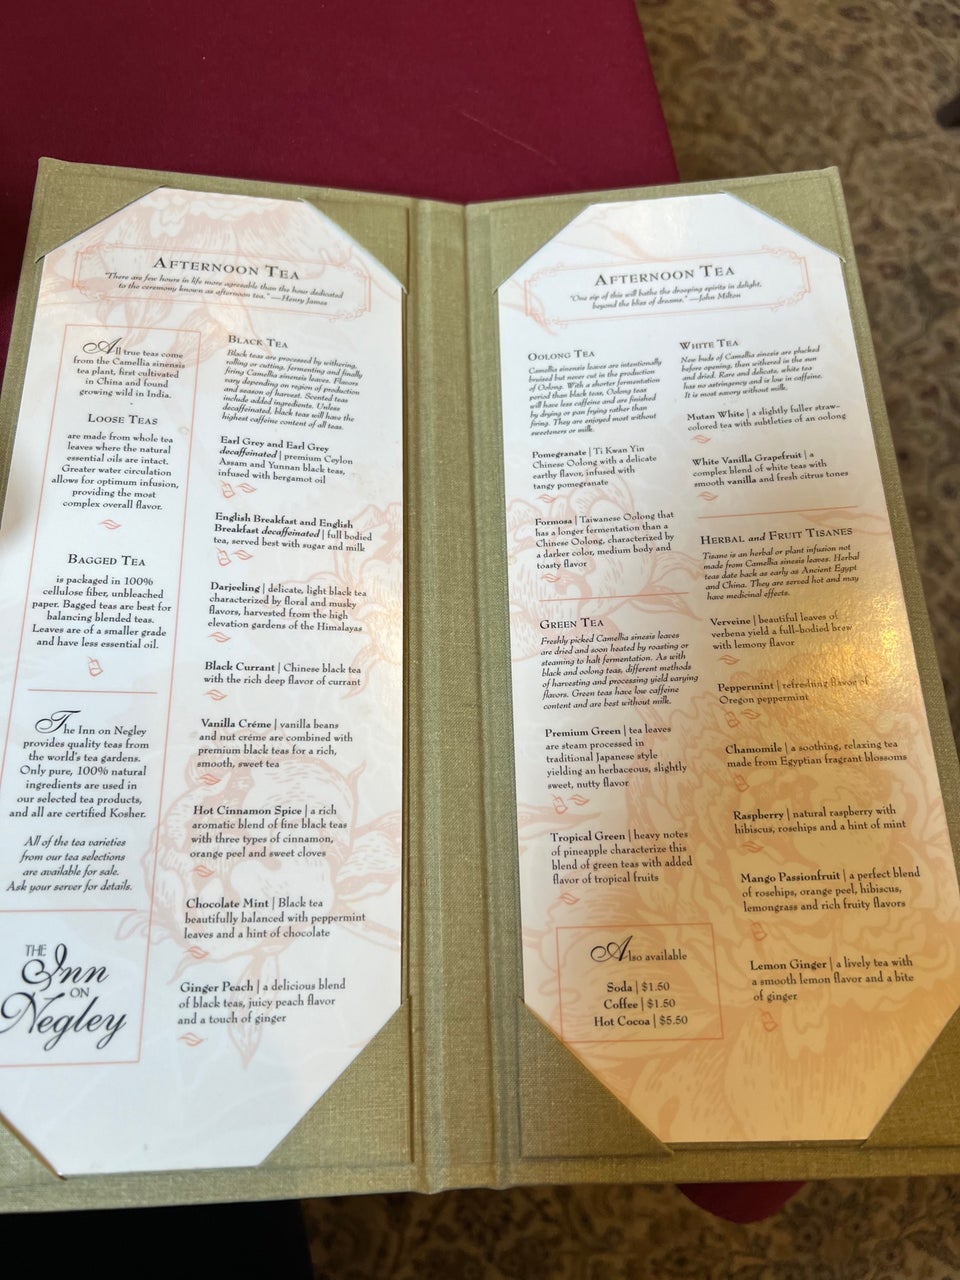 AFTERNOON TEA
"There are few hours in life more agreeable than the hour dedicated
to the ceremony known as afternoon tea." —Henry James
All true teas come
from the Camellia sinensis
tea plant, first cultivated
in China and found
growing wild in India.
LOOSE TEAS
are made from whole tea
leaves where the natural
essential oils are intact.
Greater water circulation
allows for optimum infusion,
providing the most
complex overall flavor.
BAGGED TEA
is packaged in 100%
cellulose fiber, unbleached
paper. Bagged teas are best for
balancing blended teas.
Leaves are of a smaller grade
and have less essential oil.
The Inn on Negley
provides quality teas from
the world's tea gardens.
Only pure, 100% natural
ingredients are used in
our selected tea products,
and all are certified Kosher.
All of the tea varieties
from our tea selections
are available for sale.
Ask your server for details.
THE
Inn
ON
Negley
BLACK TEA
Black teas are processed by withering,
rolling or cutting, fermenting and finally
firing Camellia sinensis leaves. Flavors
vary depending on region of production
and season of harvest. Scented teas
include added ingredients. Unless
decaffeinated, black teas will have the
highest caffeine content of all teas.
Earl Grey and Earl Grey
decaffeinated | premium Ceylon
Assam and Yunnan black teas,
infused with bergamot oil
English Breakfast and English
Breakfast decaffeinated | full bodied
tea, served best with sugar and milk
Darjeeling | delicate, light black tea
characterized by floral and musky
flavors, harvested from the high
elevation gardens of the Himalayas
Black Currant | Chinese black tea
with the rich deep flavor of currant
Vanilla Créme | vanilla beans
and nut créme are combined with
premium black teas for a rich,
smooth, sweet tea
Hot Cinnamon Spice | a rich
aromatic blend of fine black teas
with three types of cinnamon,
orange peel and sweet cloves
Chocolate Mint | Black tea
beautifully balanced with peppermint
leaves and a hint of chocolate
Ginger Peach | a delicious blend
of black teas, juicy peach flavor
and a touch of ginger
AFTERNOON TEA
"One sip of this will bathe the drooping spirits in delight,
beyond the bliss of dreams." —John Milton
OOLONG TEA
Camellia sinensis leaves are intentionally
bruised but never cut in the production
of Oolong. With a shorter fermentation
period than black teas, Oolong teas
will have less caffeine and are finished
by drying or pan frying rather than
firing. They are enjoyed most without
sweeteners or milk.
Pomegranate | Ti Kwan Yin
Chinese Oolong with a delicate
earthy flavor, infused with
tangy pomegranate
Formosa | Taiwanese Oolong that
has a longer fermentation than a
Chinese Oolong, characterized by
a darker color, medium body and
toasty flavor
GREEN TEA
Freshly picked Camellia sinesis leaves
are dried and soon heated by roasting or
steaming to halt fermentation. As with
black and oolong teas, different methods
of harvesting and processing yield varying
flavors. Green teas have low caffeine
content and are best without milk.
Premium Green | tea leaves
are steam processed in
traditional Japanese style
yielding an herbaceous, slightly
sweet, nutty flavor
Tropical Green | heavy notes
of pineapple characterize this
blend of green teas with added
flavor of tropical fruits
Also available
Soda | $1.50
Coffee | $1.50
Hot Cocoa | $5.50
WHITE TEA
New buds of Camellia sinesis are plucked
before opening, then withered in the sun
and dried. Rare and delicate, white tea
has no astringency and is low in caffeine.
It is most savory without milk.
Mutan White | a slightly fuller straw-
colored tea with subtleties of an oolong
White Vanilla Grapefruit | a
complex blend of white teas with
smooth vanilla and fresh citrus tones
HERBAL and FRUIT TISANES
Tisane is an herbal or plant infusion not
made from Camellia sinesis leaves. Herbal
teas date back as early as Ancient Egypt
and China. They are served hot and may
have medicinal effects.
Verveine | beautiful leaves of
verbena yield a full-bodied brew
with lemony flavor
Peppermint | refreshing flavor of
Oregon peppermint
Chamomile | a soothing, relaxing tea
made from Egyptian fragrant blossoms
Raspberry | natural raspberry with
hibiscus, rosehips and a hint of mint
Mango Passionfruit | a perfect blend
of rosehips, orange peel, hibiscus,
lemongrass and rich fruity flavors
Lemon Ginger | a lively tea with
a smooth lemon flavor and a bite
of ginger